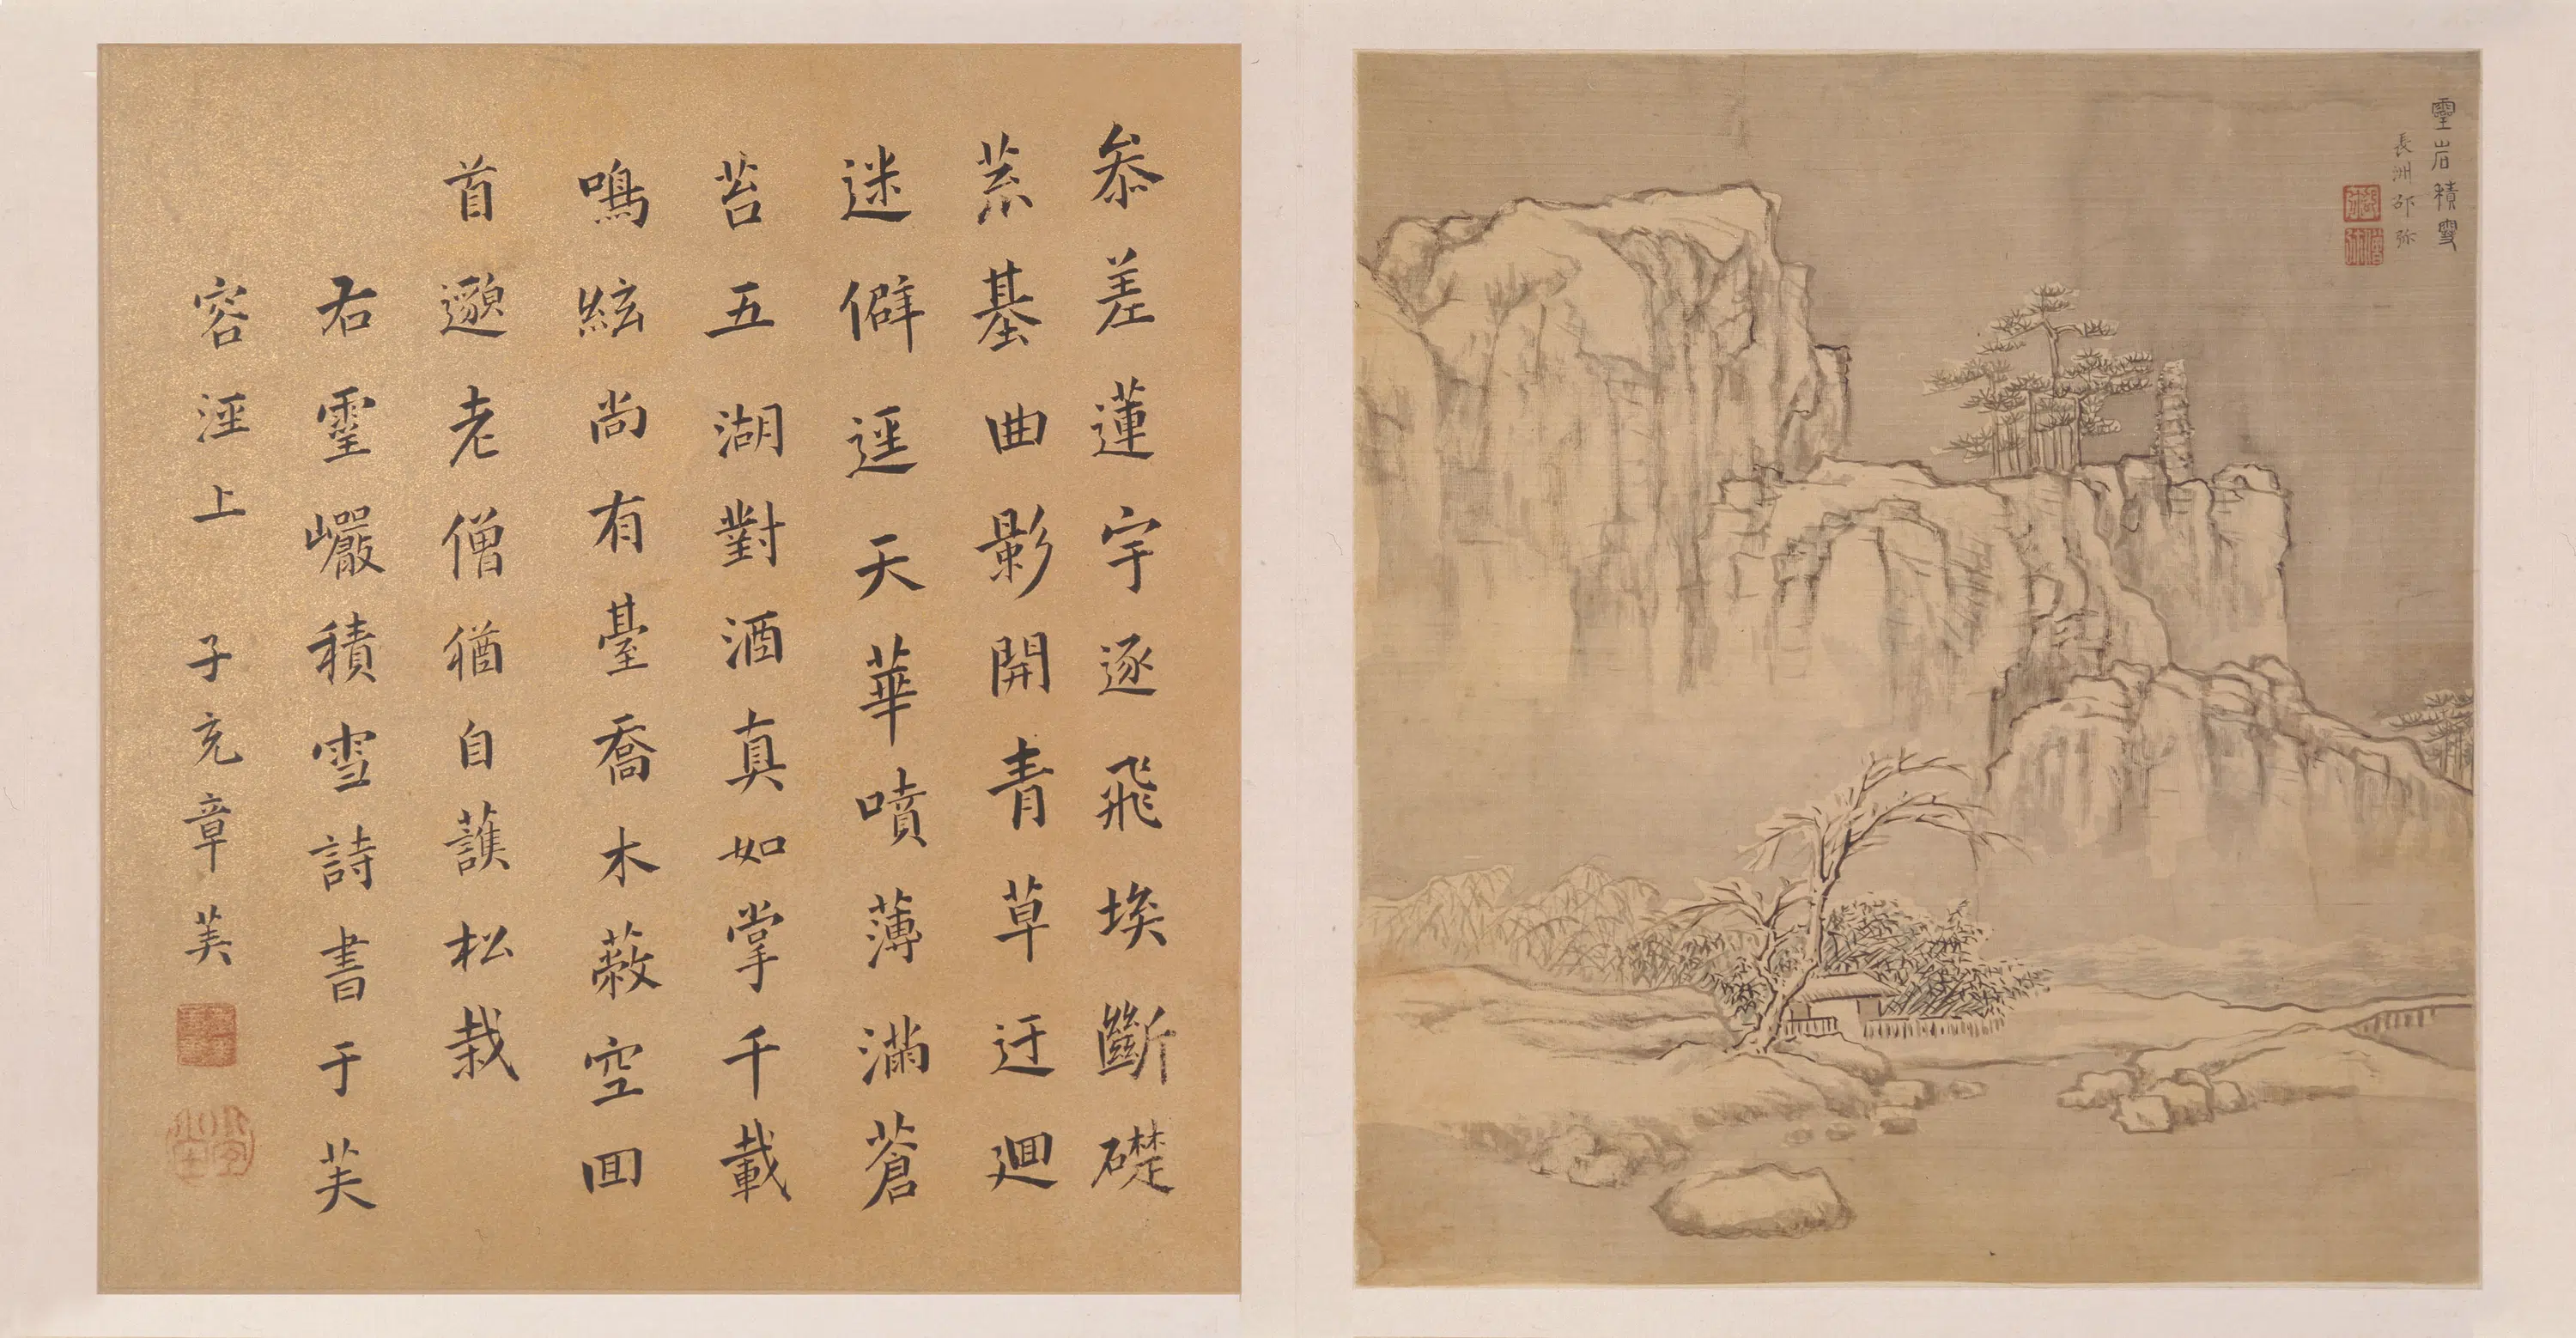 靈岩積雪
長洲邵弥
叅差蓮宇逐飛埃斷礎
荒基曲影開青草迂廻
迷僻逕天華噴薄滿蒼
苔五湖對酒真如掌千載
鳴絃尚有臺喬木蔽空回
首邈老僧猶自護松栽
右靈巖積雪詩書于芙
容涇上 子充章美